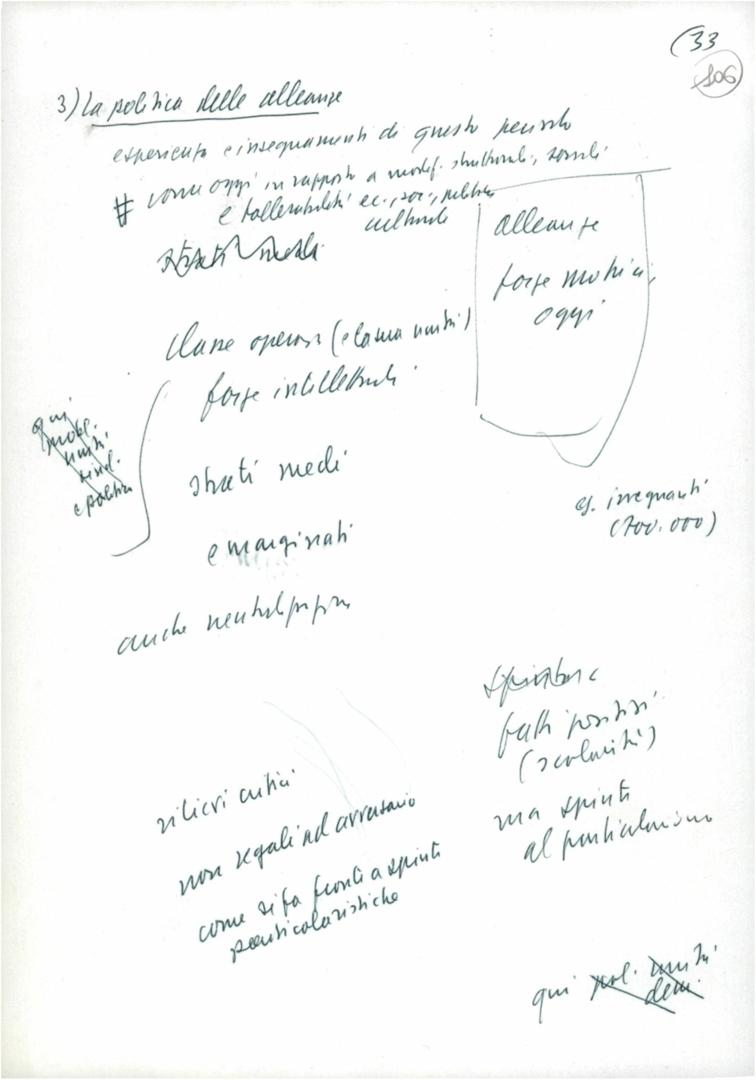 (33
106
3) La politica delle alleanze
esperienza e insegnamenti di questo periodo
# come oggi in rapporto a modif. strutturali, sociali
e tollerabilità ec., soc., politica
culturale
strati medi
alleanze
forze motrici
oggi
classe operaia (e la sua unità)
forze intellettuali
qui
probl.
unità
sind.
e politica
strati medi
es. insegnanti
(700.000)
emarginati
anche neutralizzazion
fatti positivi
(scolarità)
ma spinte
al particolarismo
rilievi critici
non regali ad avversario
come si fa fronte a spinte
particolaristiche
qui pol. unità
dem.